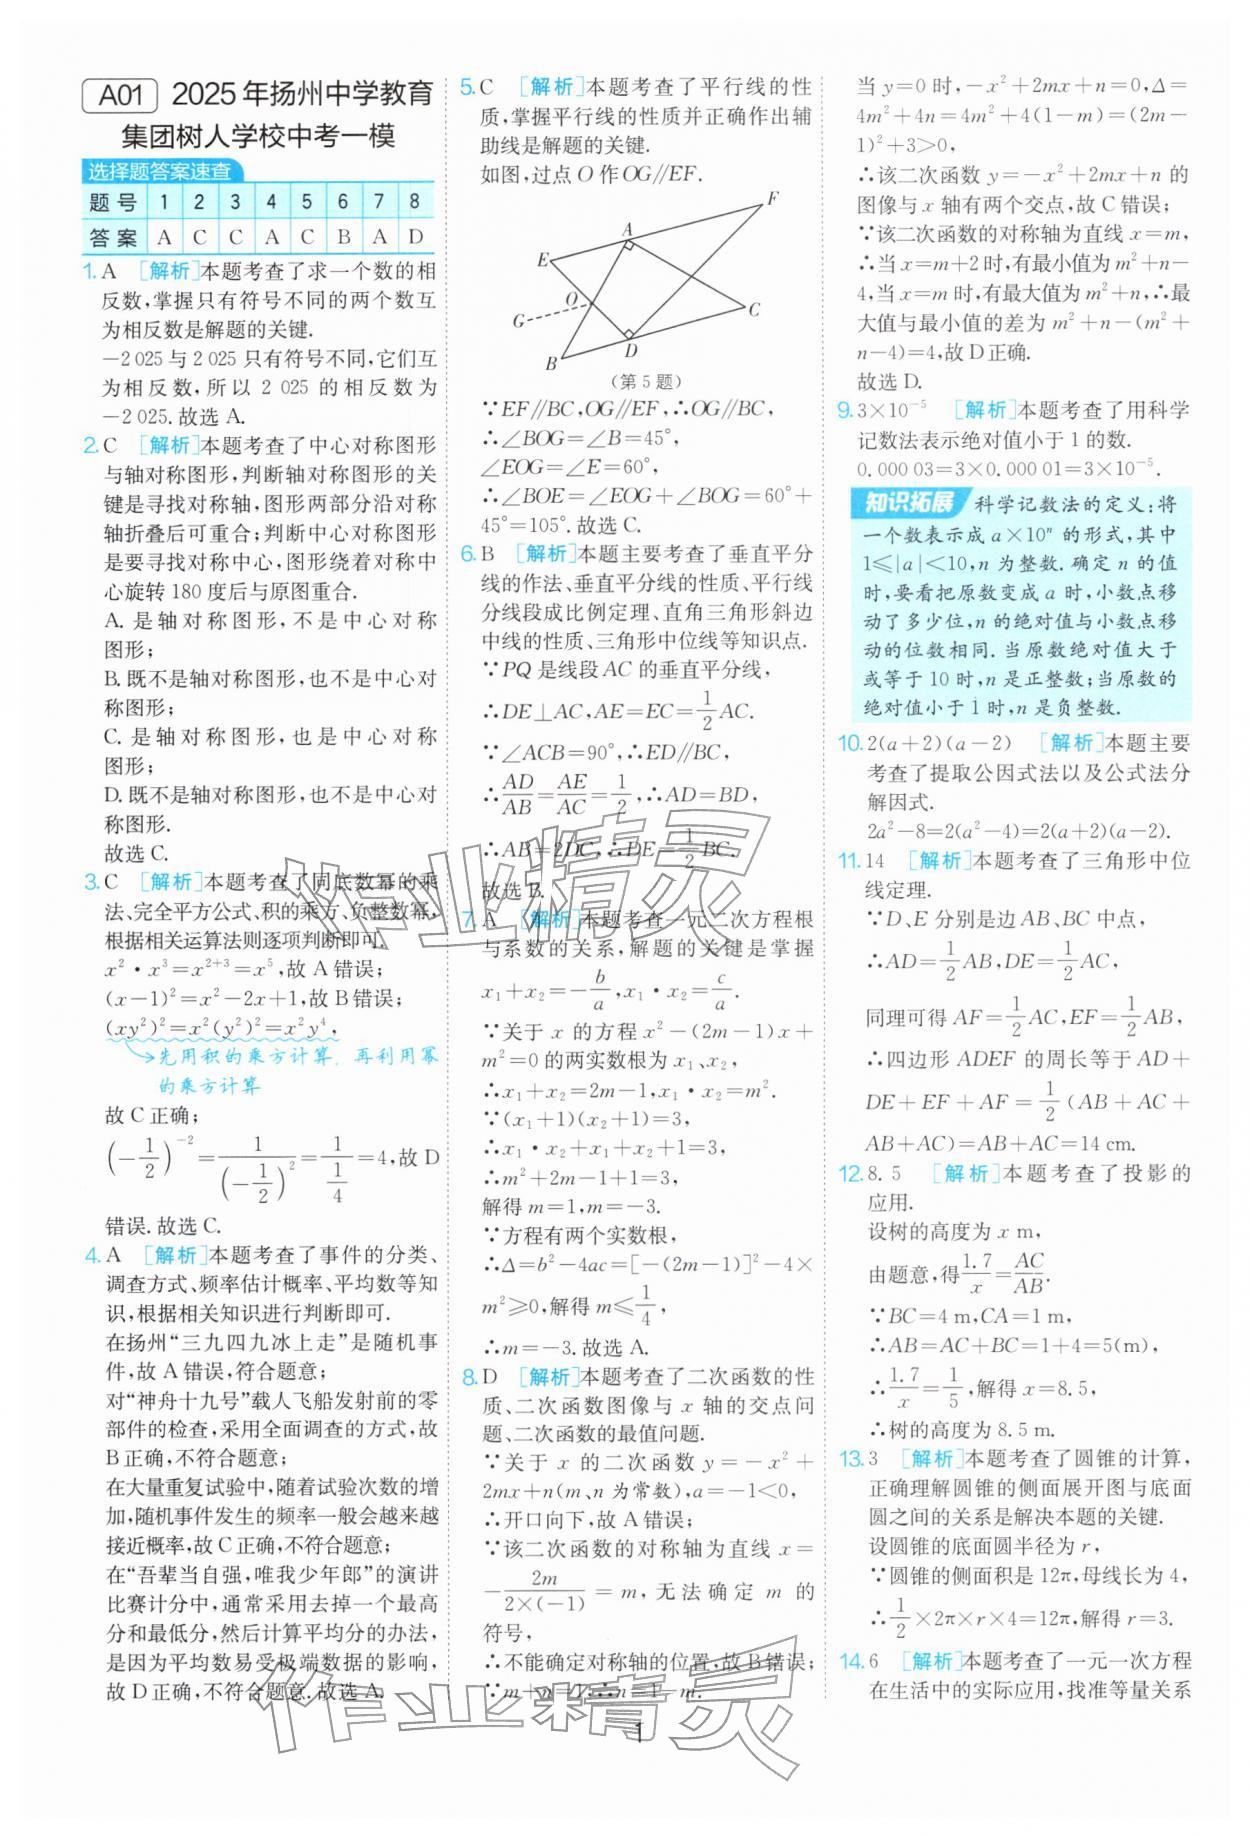 A01 2025年扬州中学教育
集团树人学校中考一模
选择题答案速查
题号 1 2 3 4 5 6 7 8
答案 A C C A C B A D
1. A [解析]本题考查了求一个数的相
反数,掌握只有符号不同的两个数互
为相反数是解题的关键.
-2 025与2 025只有符号不同,它们互
为相反数,所以2 025的相反数为
-2 025.故选A.
2. C [解析]本题考查了中心对称图形
与轴对称图形,判断轴对称图形的关
键是寻找对称轴,图形两部分沿对称
轴折叠后可重合;判断中心对称图形
是要寻找对称中心,图形绕着对称中
心旋转180度后与原图重合.
A. 是轴对称图形,不是中心对称
图形;
B. 既不是轴对称图形,也不是中心对
称图形;
C. 是轴对称图形,也是中心对称
图形;
D. 既不是轴对称图形,也不是中心对
称图形.
故选C.
3. C [解析]本题考查了同底数幂的乘
法、完全平方公式、积的乘方、负整数幂,
根据相关运算法则逐项判断即可.
x²·x³=x²⁺³=x⁵,故A错误;
(x-1)²=x²-2x+1,故B错误;
(xy²)²=x²(y²)²=x²y⁴,
先用积的乘方计算,再利用幂
的乘方计算
故C正确;
(-1/2)⁻²=1/(-1/2)²=1/(1/4)=4,故D
错误.故选C.
4. A [解析]本题考查了事件的分类、
调查方式、频率估计概率、平均数等知
识,根据相关知识进行判断即可.
在扬州“三九四九冰上走”是随机事
件,故A错误,符合题意;
对“神舟十九号”载人飞船发射前的零
部件的检查,采用全面调查的方式,故
B正确,不符合题意;
在大量重复试验中,随着试验次数的增
加,随机事件发生的频率一般会越来越
接近概率,故C正确,不符合题意;
在“吾辈当自强,唯我少年郎”的演讲
比赛计分中,通常采用去掉一个最高
分和最低分,然后计算平均分的办法,
是因为平均数易受极端数据的影响,
故D正确,不符合题意.故选A.
5. C [解析]本题考查了平行线的性
质,掌握平行线的性质并正确作出辅
助线是解题的关键.
如图,过点O作OG∥EF.
F
A
E
O
G
C
B
D
(第5题)
∵EF∥BC,OG∥EF,∴OG∥BC,
∴∠BOG=∠B=45°,
∠EOG=∠E=60°,
∴∠BOE=∠EOG+∠BOG=60°+
45°=105°.故选C.
6. B [解析]本题主要考查了垂直平分
线的作法、垂直平分线的性质、平行线
分线段成比例定理、直角三角形斜边
中线的性质、三角形中位线等知识点.
∵PQ是线段AC的垂直平分线,
∴DE⊥AC,AE=EC=1/2AC.
∵∠ACB=90°,∴ED∥BC,
∴AD/AB=AE/AC=1/2,∴AD=BD,
∴AB=2DC,∴DE=1/2BC.
故选B.
7. A [解析]本题考查一元二次方程根
与系数的关系,解题的关键是掌握
x₁+x₂=-b/a,x₁·x₂=c/a.
∵关于x的方程x²-(2m-1)x+
m²=0的两实数根为x₁、x₂,
∴x₁+x₂=2m-1,x₁·x₂=m².
∵(x₁+1)(x₂+1)=3,
∴x₁·x₂+x₁+x₂+1=3,
∴m²+2m-1+1=3,
解得m=1,m=-3.
∵方程有两个实数根,
∴Δ=b²-4ac=[-(2m-1)]²-4×
m²≥0,解得m≤1/4,
∴m=-3.故选A.
8. D [解析]本题考查了二次函数的性
质、二次函数图像与x轴的交点问
题、二次函数的最值问题.
∵关于x的二次函数y=-x²+
2mx+n(m、n为常数),a=-1<0,
∴开口向下,故A错误;
∵该二次函数的对称轴为直线x=
-2m/2×(-1)=m,无法确定m的
符号,
∴不能确定对称轴的位置,故B错误;
∵m+n=1,∴n=1-m.
当y=0时,-x²+2mx+n=0,Δ=
4m²+4n=4m²+4(1-m)=(2m-
1)²+3>0,
∴该二次函数y=-x²+2mx+n的
图像与x轴有两个交点,故C错误;
∵该二次函数的对称轴为直线x=m,
∴当x=m+2时,有最小值为m²+n-
4,当x=m时,有最大值为m²+n,∴最
大值与最小值的差为m²+n-(m²+
n-4)=4,故D正确.
故选D.
9. 3×10⁻⁵ [解析]本题考查了用科学
记数法表示绝对值小于1的数.
0.000 03=3×0.000 01=3×10⁻⁵.
知识拓展 科学记数法的定义:将
一个数表示成a×10ⁿ的形式,其中
1≤|a|<10,n为整数.确定n的值
时,要看把原数变成a时,小数点移
动了多少位,n的绝对值与小数点移
动的位数相同.当原数绝对值大于
或等于10时,n是正整数;当原数的
绝对值小于1时,n是负整数.
10. 2(a+2)(a-2) [解析]本题主要
考查了提取公因式法以及公式法分
解因式.
2a²-8=2(a²-4)=2(a+2)(a-2).
11. 14 [解析]本题考查了三角形中位
线定理.
∵D、E分别是边AB、BC中点,
∴AD=1/2AB,DE=1/2AC,
同理可得AF=1/2AC,EF=1/2AB,
∴四边形ADEF的周长等于AD+
DE+EF+AF=1/2(AB+AC+
AB+AC)=AB+AC=14 cm.
12. 8.5 [解析]本题考查了投影的
应用.
设树的高度为x m,
由题意,得1.7/x=AC/AB.
∵BC=4 m,CA=1 m,
∴AB=AC+BC=1+4=5(m),
∴1.7/x=1/5,解得x=8.5,
∴树的高度为8.5 m.
13. 3 [解析]本题考查了圆锥的计算,
正确理解圆锥的侧面展开图与底面
圆之间的关系是解决本题的关键.
设圆锥的底面圆半径为r,
∵圆锥的侧面积是12π,母线长为4,
∴1/2×2π×r×4=12π,解得r=3.
14. 6 [解析]本题考查了一元一次方程
在生活中的实际应用,找准等量关系
1
作业精灵
作业精灵